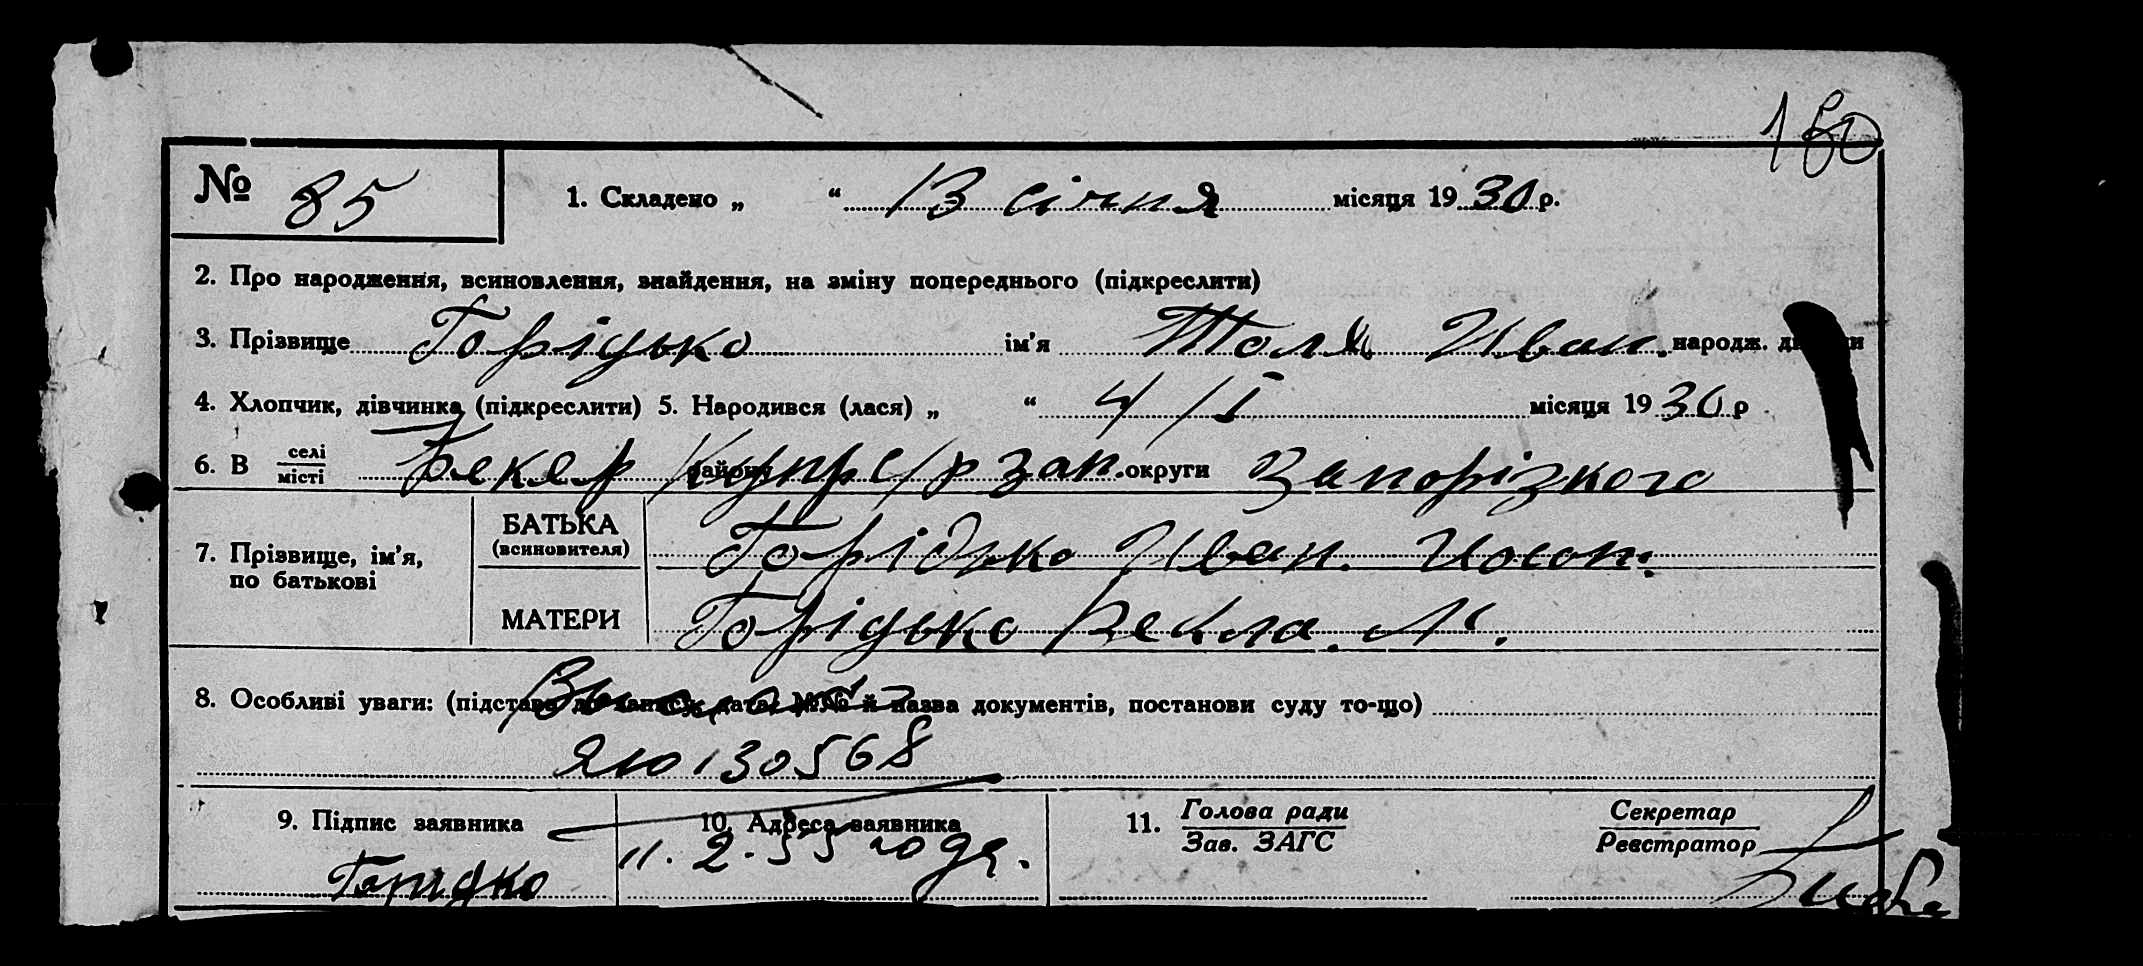 180
№ 85 1. Складено „ “ 13 січня місяця 1930 р.
2. Про народження, всиновлення, знайдення, на зміну попереднього (підкреслити)
3. Прізвище Горідько ім’я Толя Иван. народж. ди
4. Хлопчик, дівчинка (підкреслити) 5. Народився (лася) „ “ 4/I місяця 1930 р
6. В селі/місті району Зап. округи Запорізкого
7. Прізвище, ім’я, по батькові
БАТЬКА (всиновителя) Горідько Иван. Иосип.
МАТЕРИ Горідько Векла. М.
8. Особливі уваги: (підстава до запису, дата, №№ й назва документів, постанови суду то-що)
210130568
9. Підпис заявника 10. Адреса заявника 11. Голова ради/Зав. ЗАГС Секретар/Реєстратор
Горидко 11.2.55 года.